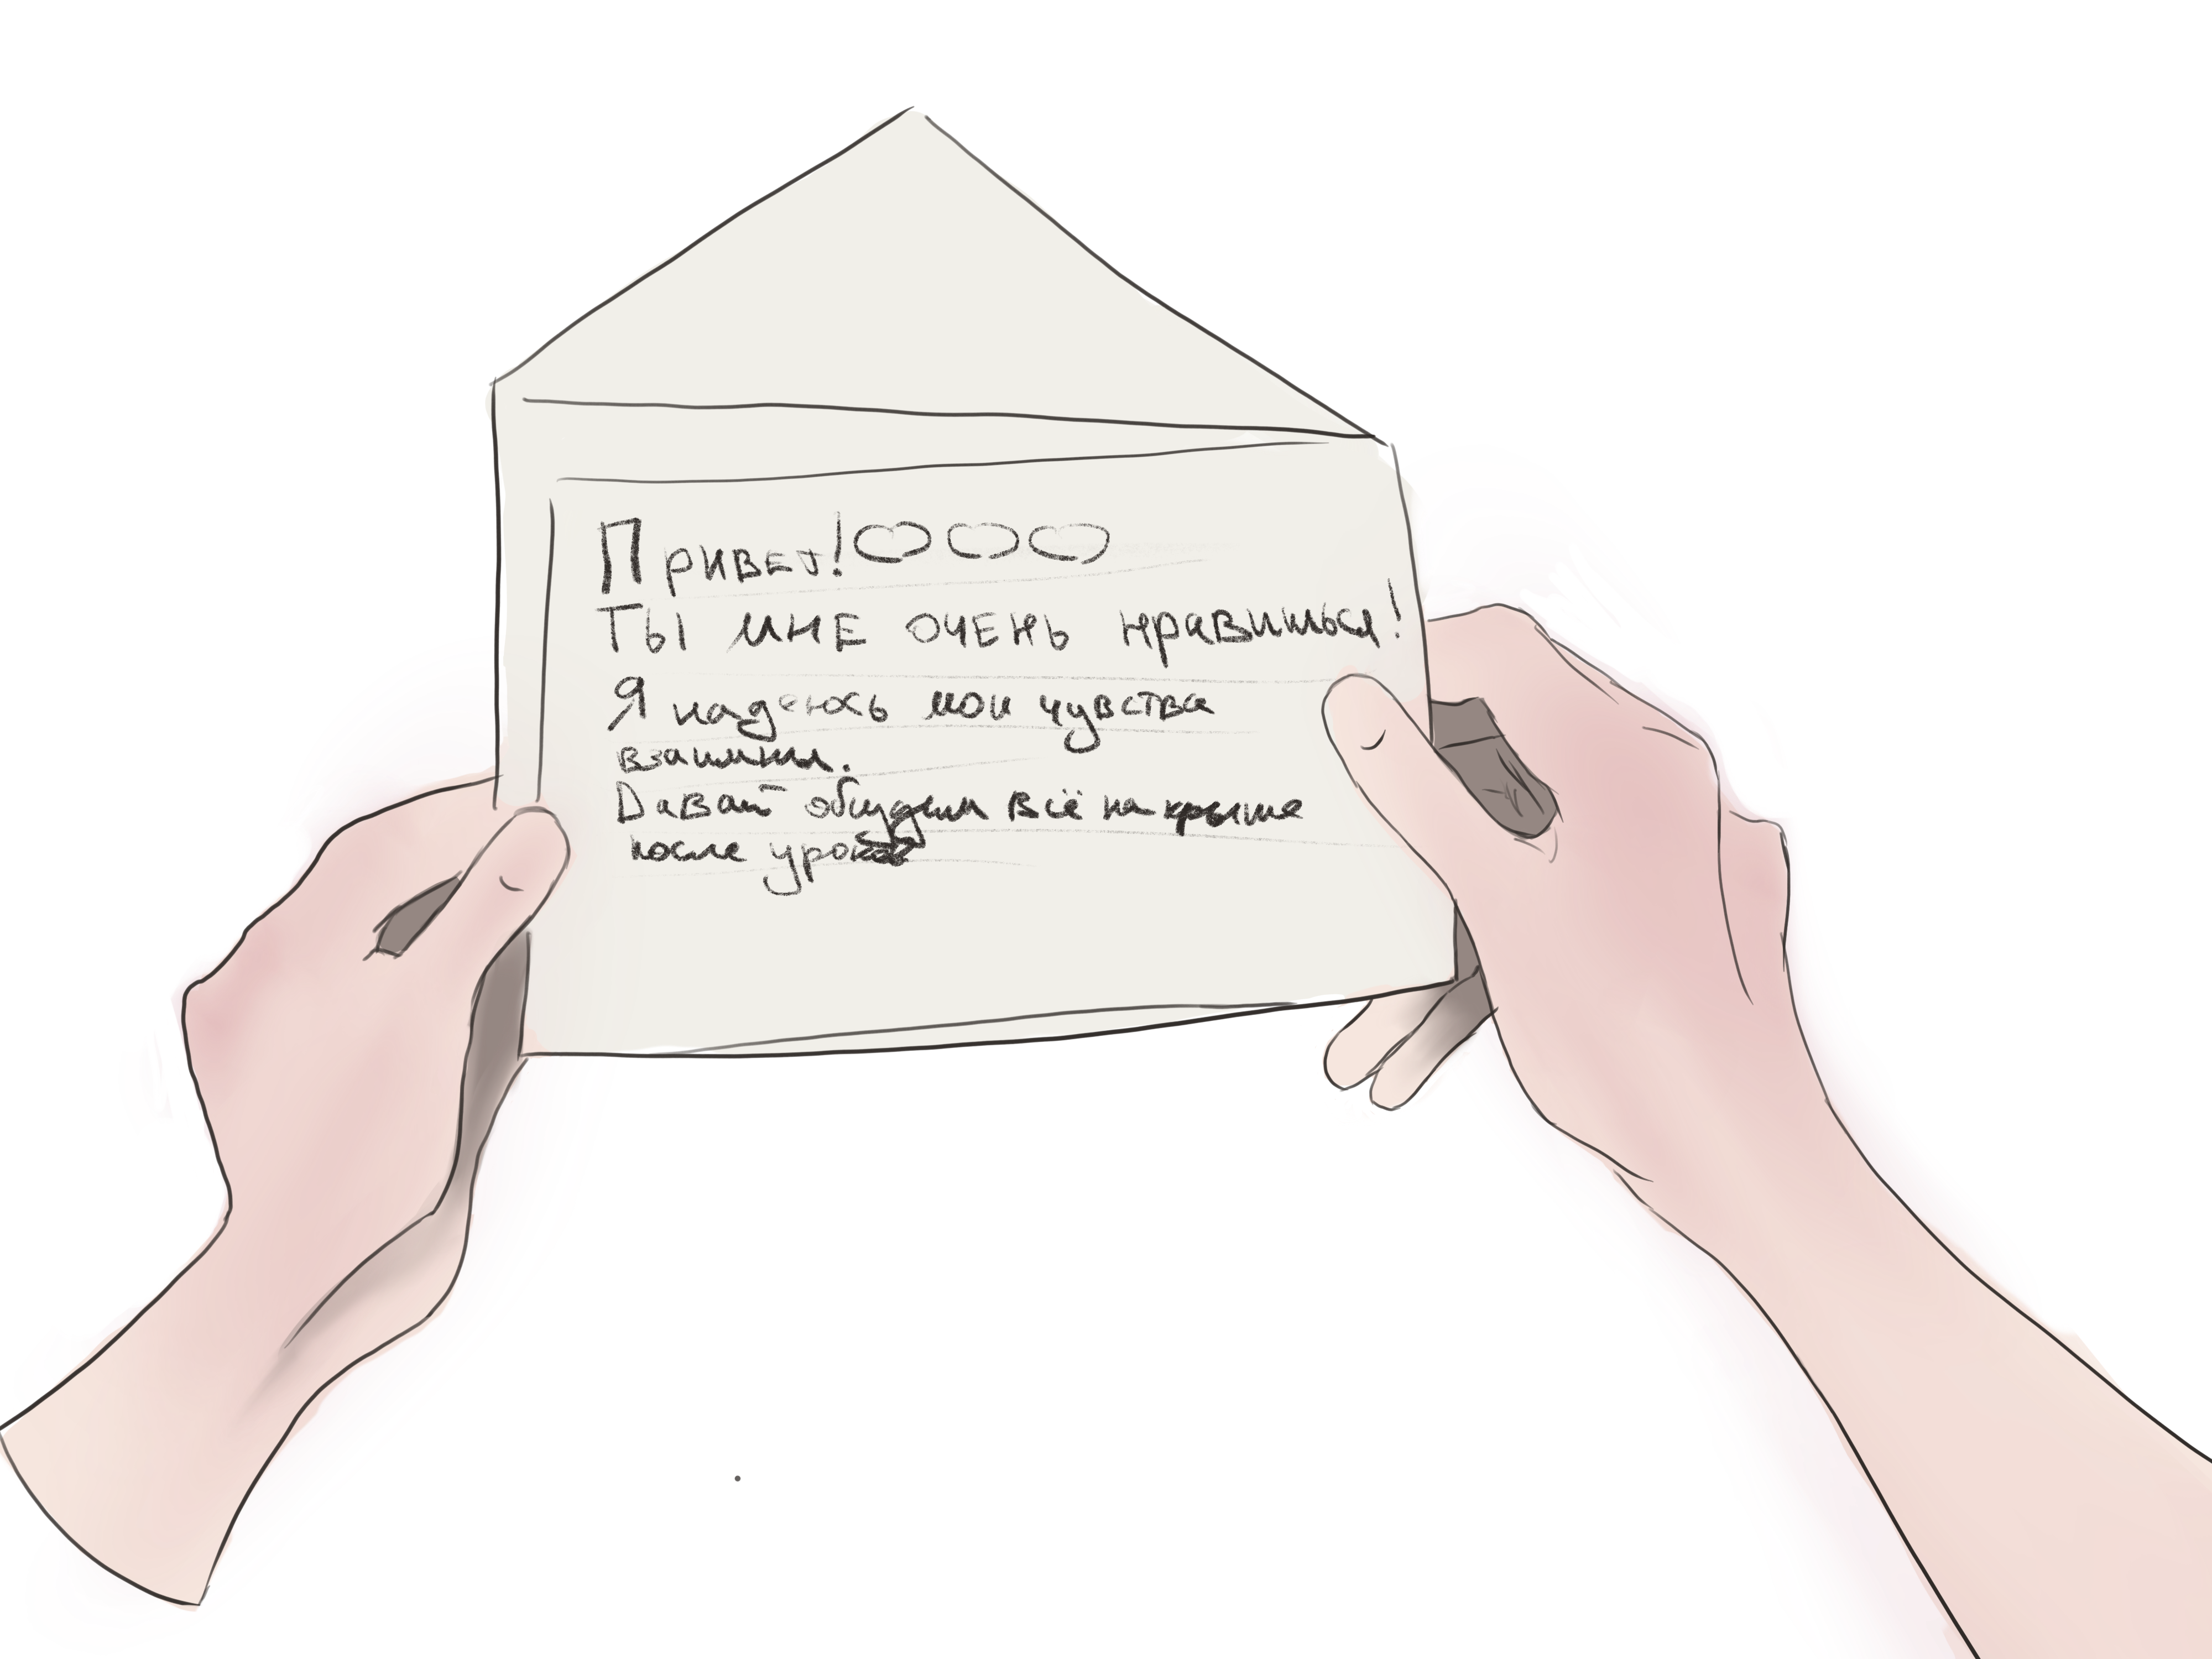 Привет!
Ты мне очень нравишься!
Я надеюсь мои чувства
взаимны.
Давай обсудим всё на крыше
после уроков